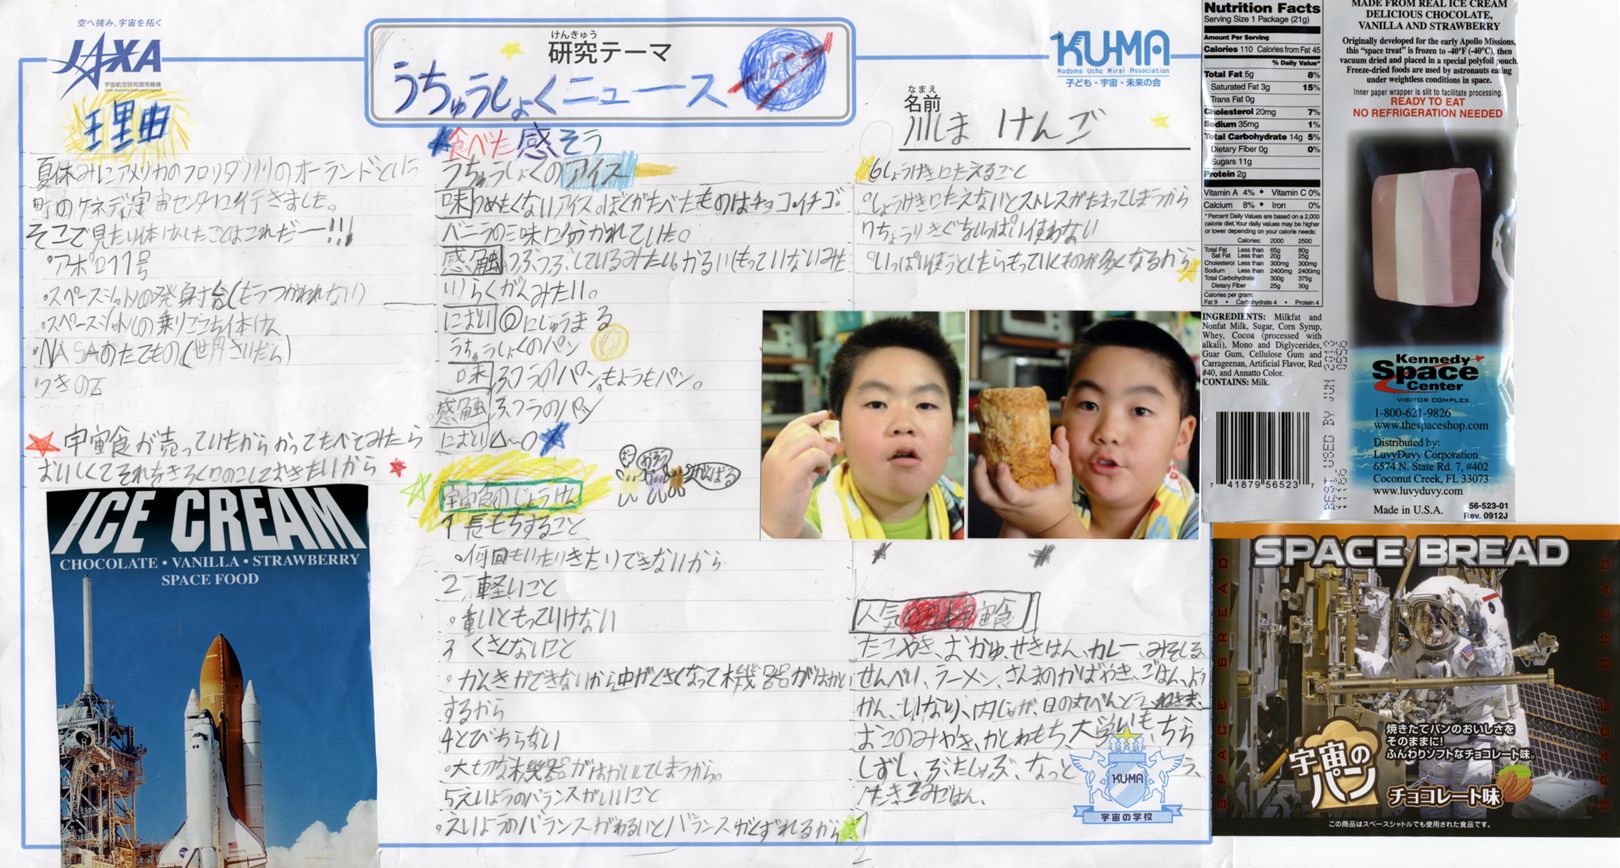 空へ挑み、宇宙を拓く
JAXA
宇宙航空研究開発機構
けんきゅう
研究テーマ
うちゅうしょくニュース
KU-MA
Kodomo Uchu Mirai Association
子ども・宇宙・未来の会
なまえ
名前
川しま けんご
理由
夏休みにアメリカのフロリダ州のオーランドという
町のケネディ宇宙センターに行きました。
そこで見たり体けんしたことはこれだー!!!
・アポロ11号
・スペースシャトルの発射台(もうつかわれない)
・スペースシャトルの乗りごこち体けん
・NASAのたてもの(世界さいだい)
つきの石
宇宙食が売っていたからかってたべてみたら
おいしくてそれをきろくにのこしておきたいから
ICE CREAM
CHOCOLATE • VANILLA • STRAWBERRY
SPACE FOOD
食べた感そう
うちゅうしょくのアイス
味 つめたくないアイス。ぼくがたべたものはチョコ・イチゴ・
バニラの三味に分かれていた。
感触 つぶつぶしているみたい。かるい(もっていないみた
い)らくがんみたい。
におい ◎にじゅうまる
うちゅうしょくのパン
味 ふつうのパン。もようもパン。
感触 ふつうのパン
におい △〜○
宇宙食のじょうけん
1 長もちすること
・何回もいったりきたりできないから
2 軽いこと
・重いともっていけない
3 くさくないこと
・かんきができないから中がくさくなって機器がはかい
するから
4 とびちらない
・大切な機器がはかいしてしまうから。
5 えいようのバランスがいいこと
・えいようのバランスがわるいとバランスがくずれるから
6 しょうげきにたえること
・しょうげきにたえないとストレスがたまってしまうから
7 ちょうりきぐをいっぱい使わない
・いっぱい使うとしたらもっていくものが多くなるから
人気の日本宇宙食
たこやき、おかゆ、せきはん、カレー、みそしる、
せんべい、ラーメン、さんまのかばやき、ごはん、よう
かん、いなり、肉じゃが、日の丸べんとう、
おこのみやき、かしわもち、大学いも、ちら
しずし、ぶたしゃぶ、なっとう、
たきこみごはん、
KU-MA
宇宙の学校
Nutrition Facts
Serving Size 1 Package (21g)
Amount Per Serving
Calories 110 Calories from Fat 45
% Daily Value*
Total Fat 5g 8%
Saturated Fat 3g 15%
Trans Fat 0g
Cholesterol 20mg 7%
Sodium 35mg 1%
Total Carbohydrate 14g 5%
Dietary Fiber 0g 0%
Sugars 11g
Protein 2g
Vitamin A 4% • Vitamin C 0%
Calcium 8% • Iron 0%
*Percent Daily Values are based on a 2,000
calorie diet. Your daily values may be higher
or lower depending on your calorie needs:
Calories: 2000 2500
Total Fat Less than 65g 80g
Sat Fat Less than 20g 25g
Cholesterol Less than 300mg 300mg
Sodium Less than 2400mg 2400mg
Total Carbohydrate 300g 375g
Dietary Fiber 25g 30g
Calories per gram:
Fat 9 • Carbohydrate 4 • Protein 4
INGREDIENTS: Milkfat and
Nonfat Milk, Sugar, Corn Syrup,
Whey, Cocoa (processed with
alkali), Mono and Diglycerides,
Guar Gum, Cellulose Gum and
Carrageenan, Artificial Flavor, Red
#40, and Annatto Color.
CONTAINS: Milk.
7 41879 56523 7
MADE FROM REAL ICE CREAM
DELICIOUS CHOCOLATE,
VANILLA AND STRAWBERRY
Originally developed for the early Apollo Missions,
this "space treat" is frozen to -40°F (-40°C), then
vacuum dried and placed in a special polyfoil pouch.
Freeze-dried foods are used by astronauts eating
under weightless conditions in space.
Inner paper wrapper is slit to facilitate processing.
READY TO EAT
NO REFRIGERATION NEEDED
Kennedy
Space
Center
VISITOR COMPLEX
1-800-621-9826
www.thespaceshop.com
Distributed by:
LuvyDuvy Corporation
6574 N. State Rd. 7, #402
Coconut Creek, FL 33073
www.luvyduvy.com
Made in U.S.A.
56-523-01
Rev. 0912J
SPACE BREAD
SPACE BREAD
SPACE BREAD
焼きたてパンのおいしさを
そのままに!
ふんわりソフトなチョコレート味。
宇宙の
パン
チョコレート味
この商品はスペースシャトルでも使用された食品です。